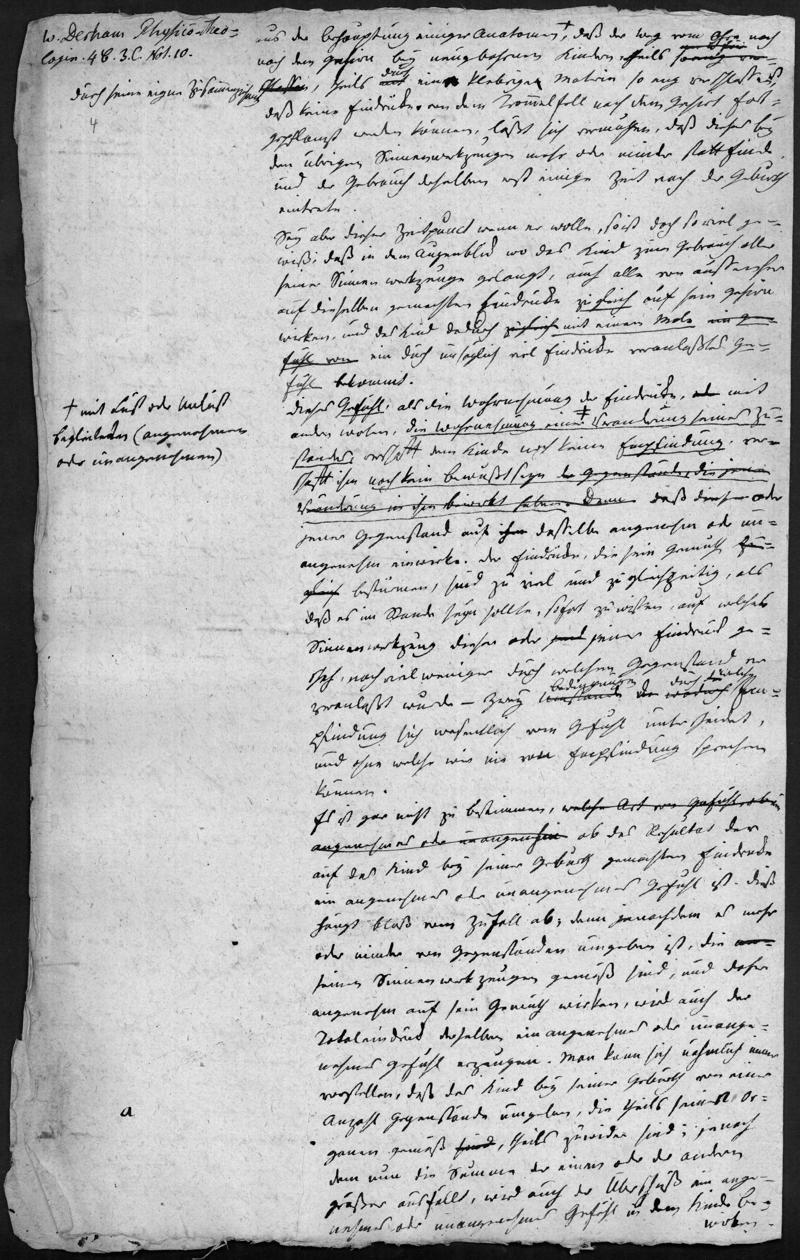 W. Derham Physico-Theo=
logie. 4 B. 3. C. Not. 10.
durch seine eigne Zusammenziehung
4
† mit Lust oder Unlust
begleiteten (angenehmen
oder unangenehmen)
a
aus der Behauptung einiger Anatomen, daß der Weg vom Ohre nach
nach dem Gehirn bey neugebohrnen Kindern, theils
theils durch eine klebrige Materie so eng verschlossen ist,
daß keine Eindrücke von dem Trommelfell nach dem Gehirn fort=
gepflanzt werden können, läßt sich vermuthen, daß dieses bey
den übrigen Sinnenwerkzeugen mehr oder minder statt finde
und der Gebrauch derselben erst einige Zeit nach der Geburth
eintrete.
Sey aber dieser Zeitpunct wenn er wolle, so ist doch soviel ge=
wiß, daß in dem Augenblick wo das Kind zum Gebrauch aller
seiner Sinnenwerkzeuge gelangt, auch alle von aussen her
auf dieselben gemachten Eindrücke zugleich auf sein Gehirn
wirken, und das Kind dadurch zugleich mit einem Male ein ge=
fühl von ein durch unsäglich viel Eindrücke veranlaßtes Ge=
fühl bekommt.
Dieses Gefühl, als die Wahrnehmung der Eindrücke, oder mit
andern Worten, die Wahrnehmung einer † Veränderung seines Zu=
standes, verschafft dem Kinde noch keine Empfindung, ver=
schafft ihm noch kein Bewußtseyn der Gegenstände, die jene
Veränderung in ihm bewirkt haben. Denn daß dieser oder
jener Gegenstand auf ihm dasselbe angenehm oder un=
angenehm einwirke. Der Eindrücke, die sein Gemüth zu=
gleich bestürmen, sind zu viel und zu gleichzeitig, als
daß es im Stande seyn sollte, sofort zu wissen, auf welches
Sinnenwerkzeug dieser oder jener Eindruck ge=
schah, noch viel weniger durch welchen Gegenstand er
veranlaßt wurde — zwey Bedingungen durch welche Em=
pfindung sich wesentlich vom Gefühl unterscheidet,
und ohne welche wir nie von Empfindung sprechen
können.
Es ist gar nicht zu bestimmen, welche Art von Gefühl, ob ein
angenehmes oder unangenehm ob das Resultat der
auf das Kind bey seiner Geburth gemachten Eindrücke
ein angenehmes oder unangenehmes Gefühl ist. Dieß
hängt bloß vom Zufall ab; denn jenachdem es mehr
oder minder von Gegenständen umgeben ist, die
seinen Sinnenwerkzeugen gemäß sind, und daher
angenehm auf sein Gemüth wirken, wird auch der
Totaleindruck derselben ein angenehmes oder unange=
nehmes Gefühl erzeugen. Man kann sich nähmlich
vorstellen, daß das Kind bey seiner Geburth von einer
Anzahl Gegenstände umgeben, die theils seinen Or=
ganen gemäß sind, theils zuwider sind; jenach
dem nun die Summe der einen oder der andern
größer ausfällt, wird auch der Überschuß ein ange=
nehmes oder unangenehmes Gefühl in dem Kinde be=
wirken.